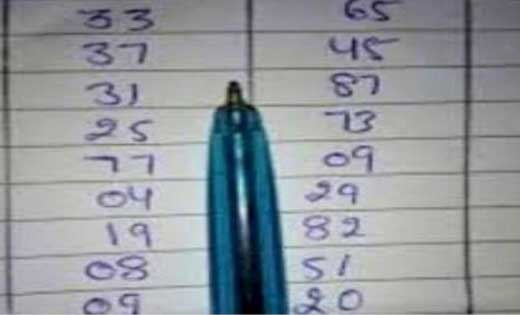 33 65
37 45
31 87
25 73
77 09
04 29
19 82
08 51
09 20